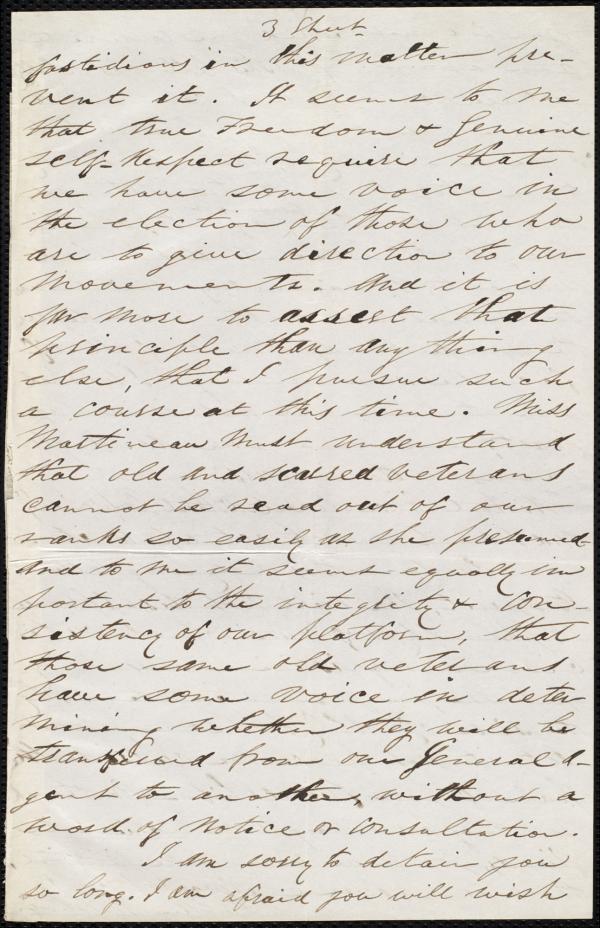 3 Sheet-
fastidious in this matter pre-
vent it. It seems to me
that true Freedom & Genuine
self-Respect require that
we have some voice in
the election of those who
are to give direction to our
movements. And it is
far more to assert that
principle than any thing
else, that I pursue such
a course at this time. Miss
Martineau must understand
that old and scarred veterans
cannot be read out of our
ranks so easily as she presumed
and to me it seems equally im
portant to the integrity & con-
sistency of our platform, that
those same old veterans
have some voice in deter
mining whether they will be
transferred from one General A-
gent to another, without a
word of notice or consultation.
I am sorry to detain you
so long. I am afraid you will wish